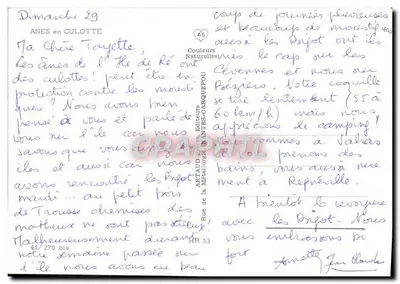 Dimanche 29
ANES en CULOTTE
Ma Chère Tayette,
Les ânes de l'Ile de Ré ont
des culottes! peut être en
protection contre les mousti
ques? Nous avons bien
pensé à vous et parlé de
vous sur l'île car nous
savions que vous
iles et aussi car nous
avons rencontré les Bizot
mardi... au petit port
de Trousse chemises. Les
matheux ne sont pas sérieux!
Malheureusement durant
41/270 bis
notre semaine passée sur
l'île nous avons eu beau
AS
Couleurs
Naturelles
ARTAUD Editeurs
Rue de la Métallurgie NANTES-CARQUEFOU
MR 53
coup de journées pluvieuses
et beaucoup de moustiques
aussi les Bizot ont ils
mis le cap sur les
Cévennes et nous sur
Béziers. Notre coquille
se tire lentement (55 à
60 km/h) mais nous
apprécions le camping!
sommes à Valras
prenons des
bains, vous aussi sûre
ment à Regnéville.
A bientôt le revoyure
avec les Bizot. Nous
vous embrassons bi
fort
Annette Jean Claude